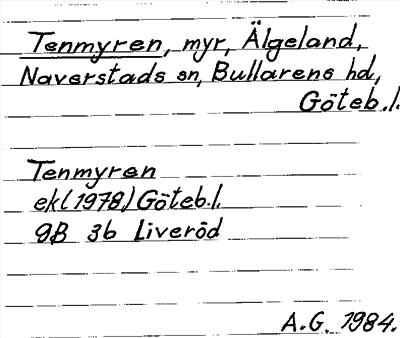 Tenmyren, myr, Älgeland,
Naverstads sn, Bullarens hd,
Göteb.l.
Tenmyren
ek(1978)Göteb.l.
9B 3b Liveröd
A.G. 1984.